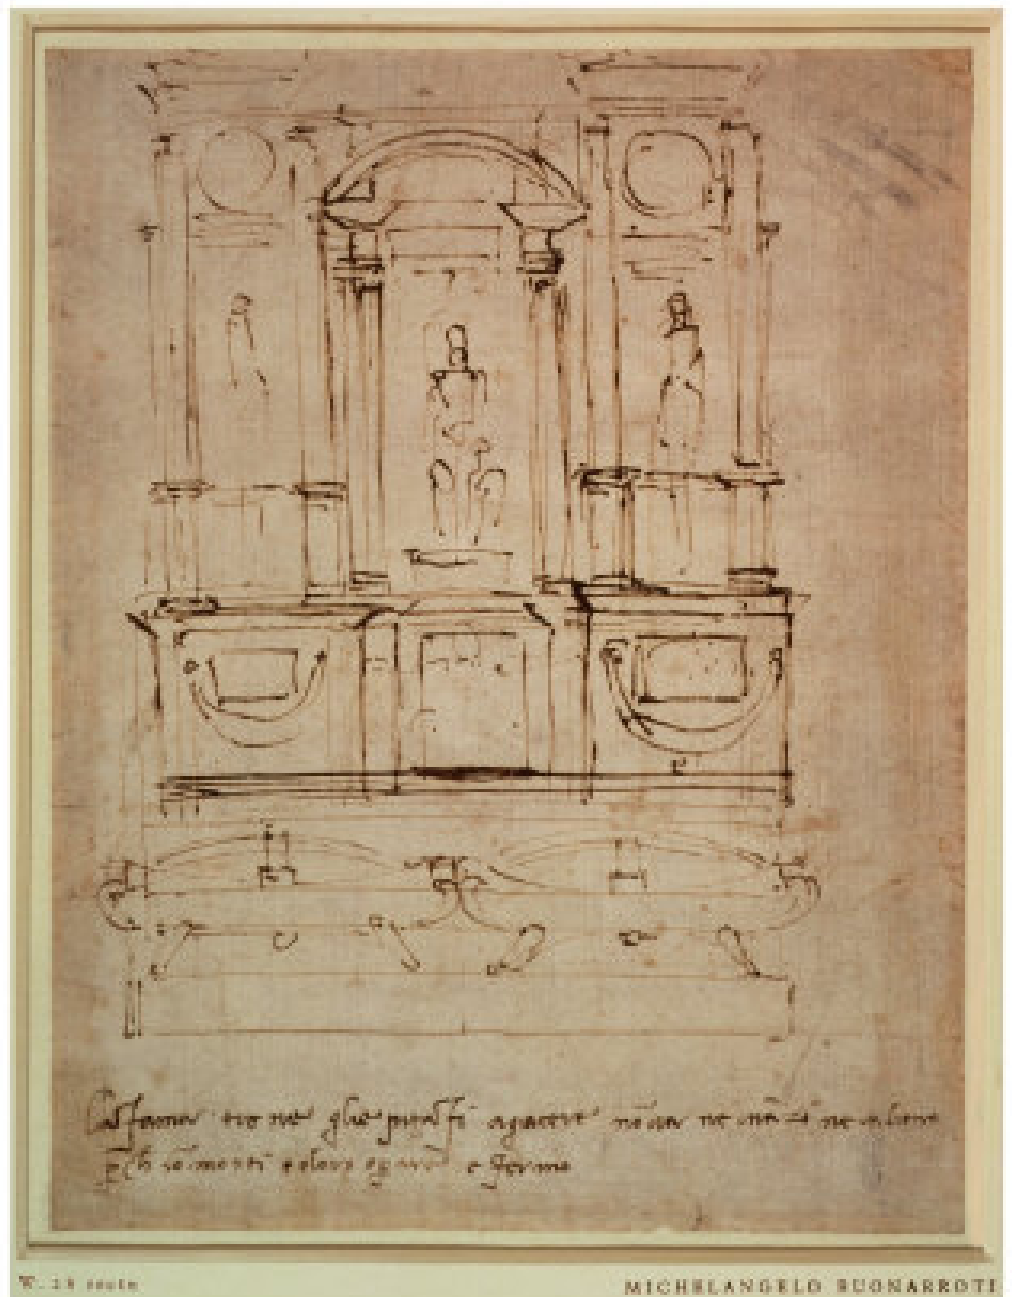 La fama tiene gli epitafi a giacere nō va ne inā zi ne indietro
p ch sō morti e loro operar e fermo
W. 28 recto
MICHELANGELO BUONARROTI